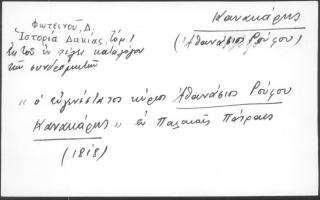 Φωτεινοῦ, Δ.
Ἱστορία Δακίας, τόμ. 1
Ἐκ τοῦ ἐν τέλει καταλόγου
τῶν συνδρομητῶν
Κανακάρης
(Ἀθανάσιος Ρούφου)
"ὁ εὐγενέστατος κύριος Ἀθανάσιος Ρούφου
Κανακάρης" ἐν Παλαιαῖς Πάτραις
(1818)